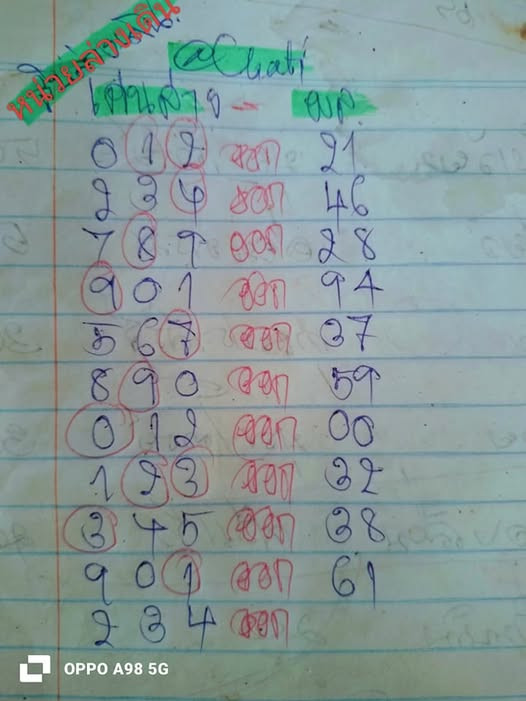 หน่วยล่วงดิน
@Chati
เด่นล่าง - ผล
0 1 2 ออก 21
2 3 4 ออก 46
7 8 9 ออก 28
9 0 1 ออก 94
5 6 7 ออก 37
8 9 0 ออก 59
0 1 2 ออก 00
1 2 3 ออก 32
3 4 5 ออก 38
9 0 1 ออก 61
2 3 4 ออก
OPPO A98 5G